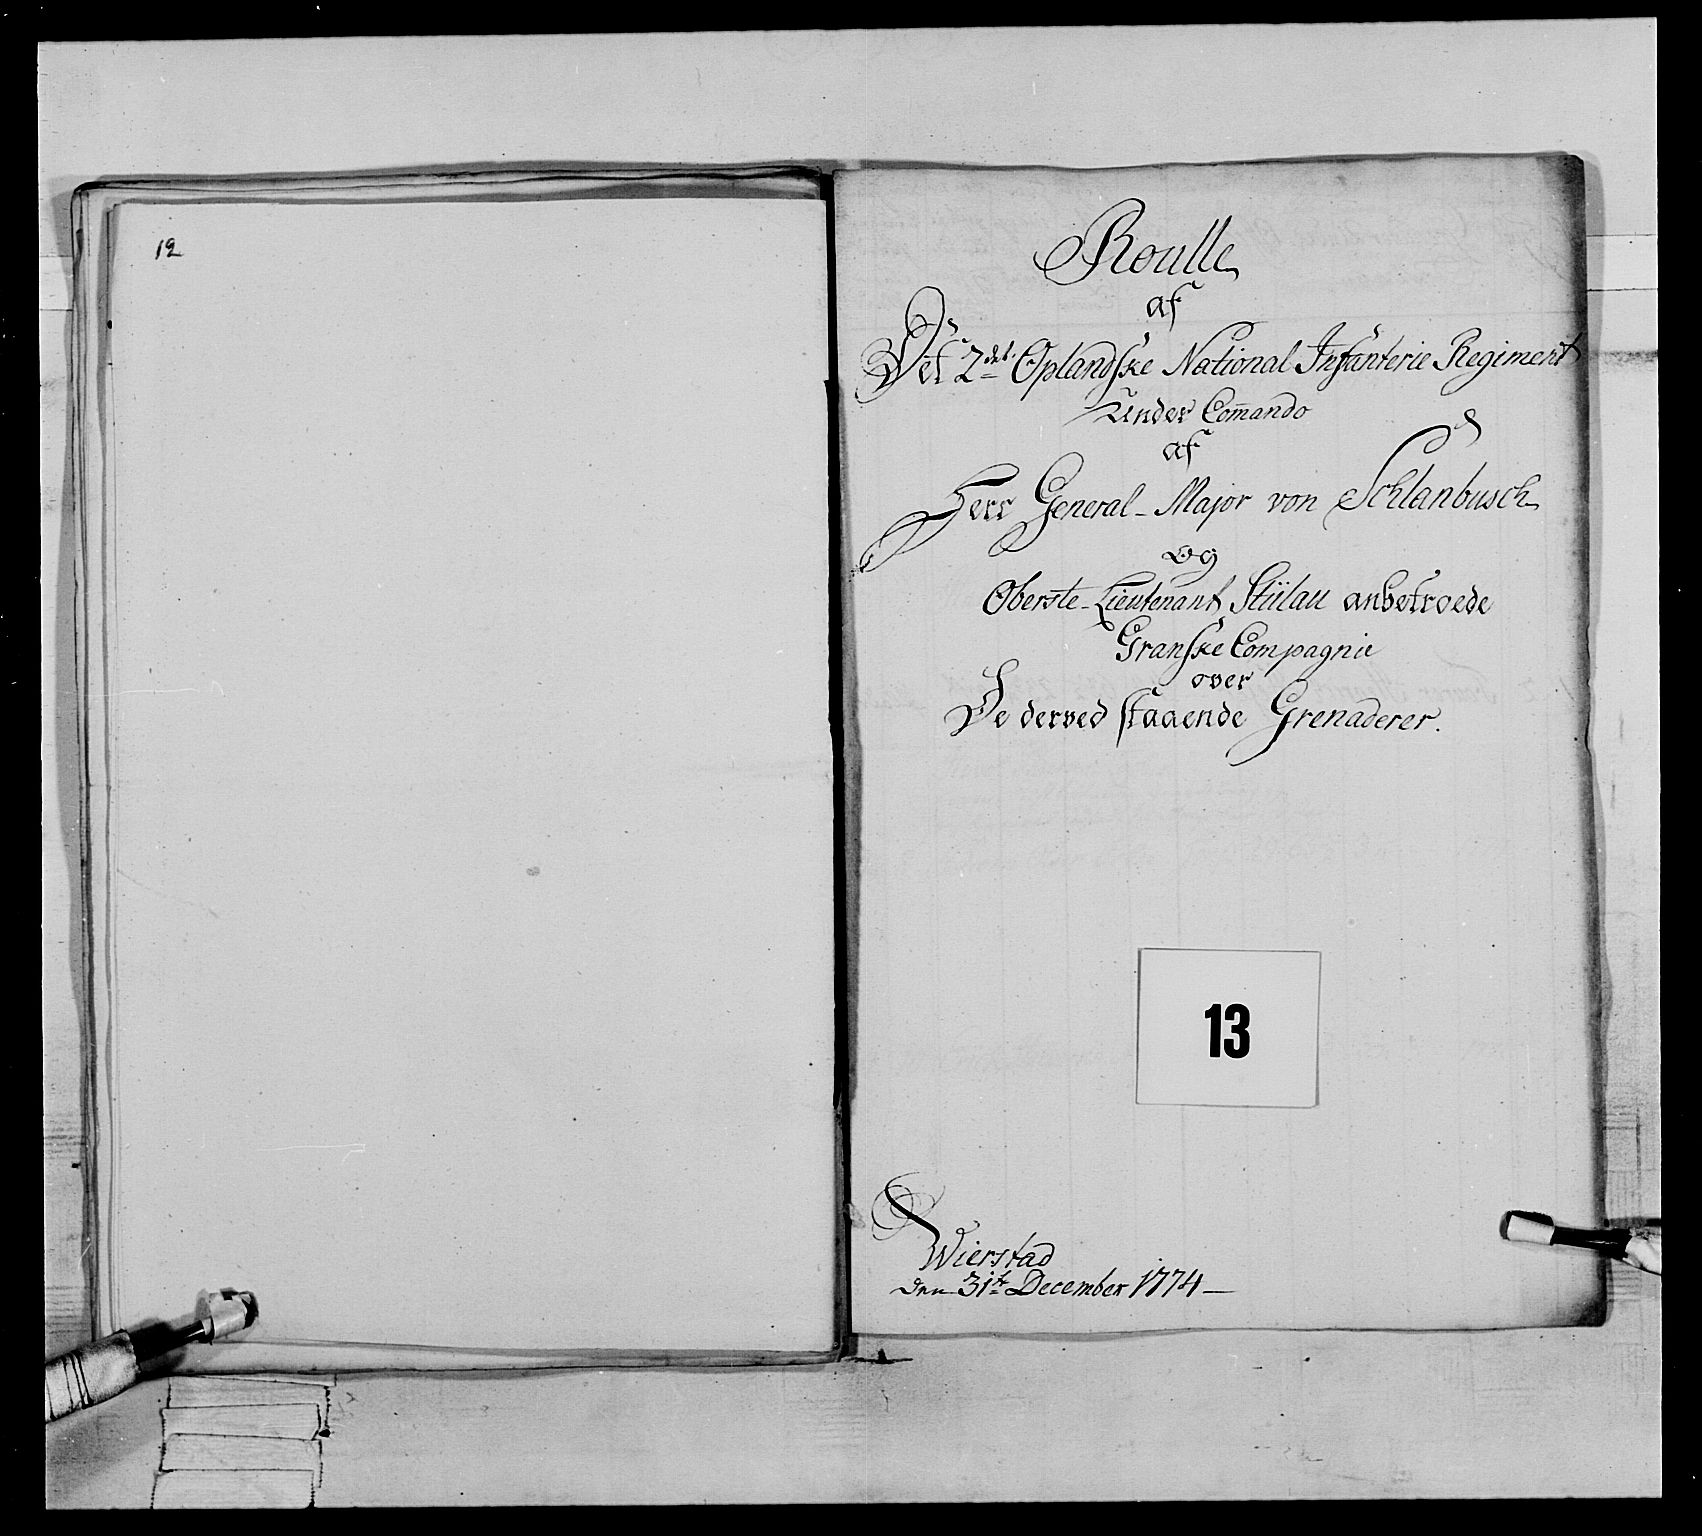 12
Roulle
af
Det 2det Oplandske National Infanterie Regiment
Under Com̄ando
af
Herr General-Major von Schlanbusch
Og
Oberste-Lieutenant Stülau anbetroede
Granske Compagnie
over
De derved staaende Grenaderer.
13
Wierstad
den 31te December 1774